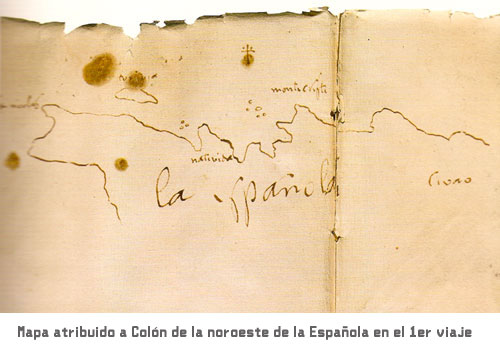 monte cristi
natividad
la española
civao
Mapa atribuido a Colón de la noroeste de la Española en el 1er viaje